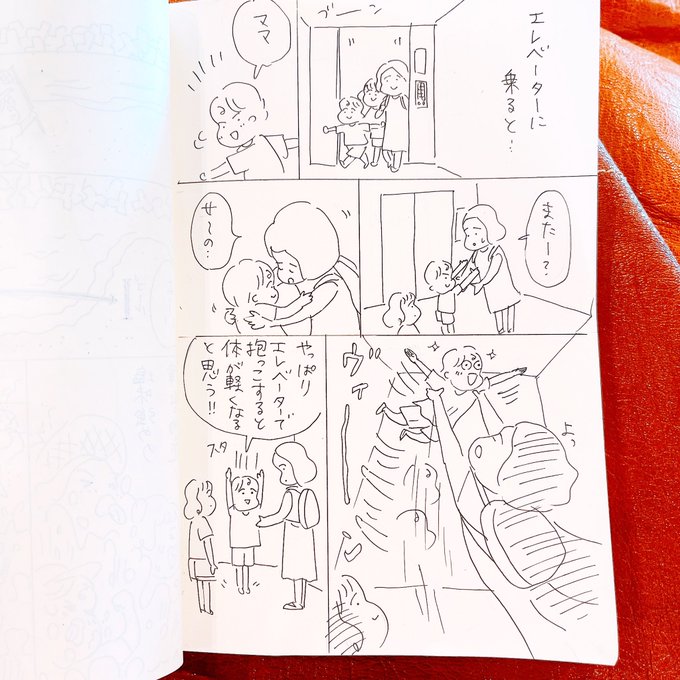 エレベーターに
乗ると…
ブーン
ママ
またー?
せーの…
ヴィーーン
よっ
やっぱり
エレベーターで
抱っこすると
体が軽くなる
と思う!!
スタ